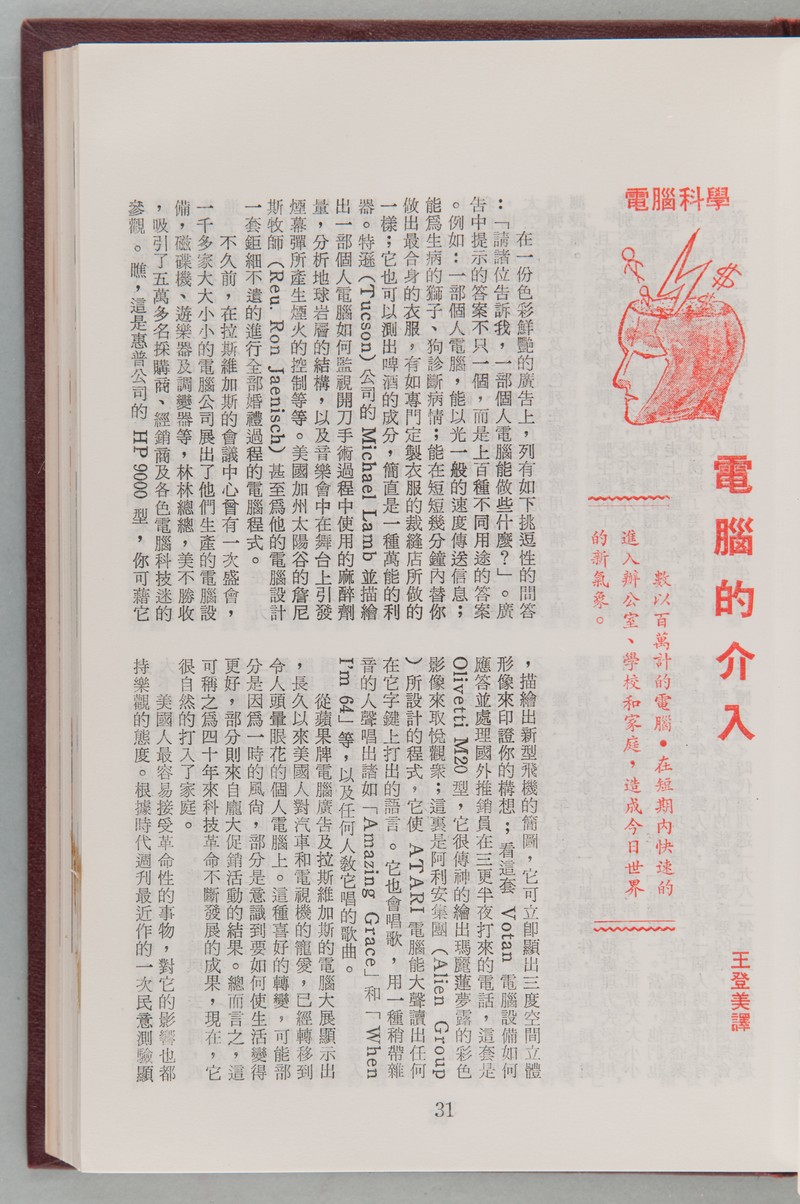 電腦科學
電腦的介入
數以百萬計的電腦•在短期內快速的
進入辦公室、學校和家庭,造成今日世界
的新氣象。
王登美譯
在一份色彩鮮艷的廣告上,列有如下挑逗性的問答
:「請諸位告訴我,一部個人電腦能做些什麼?」。廣
告中提示的答案不只一個,而是上百種不同用途的答案
。例如:一部個人電腦,能以光一般的速度傳送信息;
能爲生病的獅子、狗診斷病情;能在短短幾分鐘內替你
做出最合身的衣服,有如專門定製衣服的裁縫店所做的
一樣;它也可以測出啤酒的成分,簡直是一種萬能的利
器。特遜(Tucson)公司的 Michael Lamb 並描繪
出一部個人電腦如何監視開刀手術過程中使用的麻醉劑
量,分析地球岩層的結構,以及音樂會中在舞台上引發
煙幕彈所產生煙火的控制等等。美國加州太陽谷的詹尼
斯牧師(Reu. Ron Jaenisch)甚至爲他的電腦設計
一套鉅細不遺的進行全部婚禮過程的電腦程式。
不久前,在拉斯維加斯的會議中心曾有一次盛會,
一千多家大大小小的電腦公司展出了他們生產的電腦設
備,磁碟機、遊樂器及調變器等,林林總總,美不勝收
,吸引了五萬多名採購商、經銷商及各色電腦科技迷的
參觀。瞧,這是惠普公司的 HP 9000 型,你可藉它
,描繪出新型飛機的簡圖,它可立卽顯出三度空間立體
形像來印證你的構想;看這套 Votan 電腦設備如何
應答並處理國外推銷員在三更半夜打來的電話,這套是
Olivetti M20 型,它很傳神的繪出瑪麗蓮夢露的彩色
影像來取悅觀衆;這裏是阿利安集團(Alien Group
)所設計的程式,它使 ATARI 電腦能大聲讀出任何
在它字鍵上打出的語言。它也會唱歌,用一種稍帶雜
音的人聲唱出諸如「Amazing Grace」和「When
I'm 64」等,以及任何人敎它唱的歌曲。
從蘋果牌電腦廣告及拉斯維加斯的電腦大展顯示出
,長久以來美國人對汽車和電視機的寵愛,已經轉移到
令人頭暈眼花的個人電腦上。這種喜好的轉變,可能部
分是因爲一時的風尙,部分是意識到要如何使生活變得
更好,部分則來自龐大促銷活動的結果。總而言之,這
可稱之爲四十年來科技革命不斷發展的成果,現在,它
很自然的打入了家庭。
美國人最容易接受革命性的事物,對它的影響也都
持樂觀的態度。根據時代週刊最近作的一次民意測驗顯
31